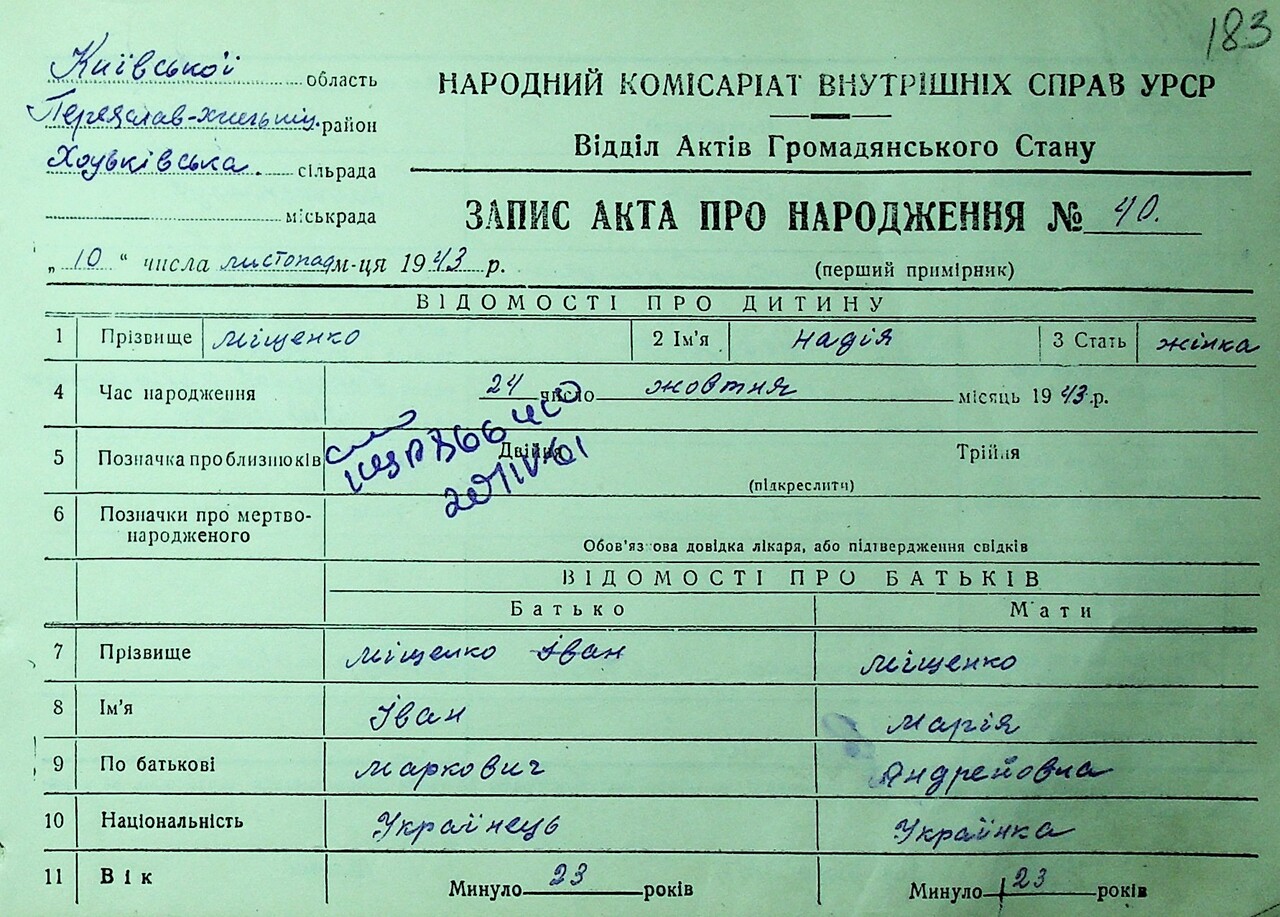 183
Київської область
НАРОДНИЙ КОМІСАРІАТ ВНУТРІШНІХ СПРАВ УРСР
Переяслав-хмельниц. район
Відділ Актів Громадянського Стану
Хоцьківська. сільрада
міськрада
ЗАПИС АКТА ПРО НАРОДЖЕННЯ № 40.
„ 10 “ числа листопад м-ця 1943 р.
(перший примірник)
ВІДОМОСТІ ПРО ДИТИНУ
1 Прізвище Міщенко 2 Ім'я Надія 3 Стать жінка
4 Час народження 24 число жовтня місяць 1943.р.
5 Позначка про близнюків Двійня Трійля
(підкреслити)
6 Позначки про мертво-
народженого
Обов'язкова довідка лікаря, або підтвердження свідків
ВІДОМОСТІ ПРО БАТЬКІВ
Батько Мати
7 Прізвище Міщенко Іван Міщенко
8 Ім'я Іван Марія
9 По батькові Маркович Андрейовна
10 Національність Українець Українка
11 Вік Минуло 23 років Минуло 23 років